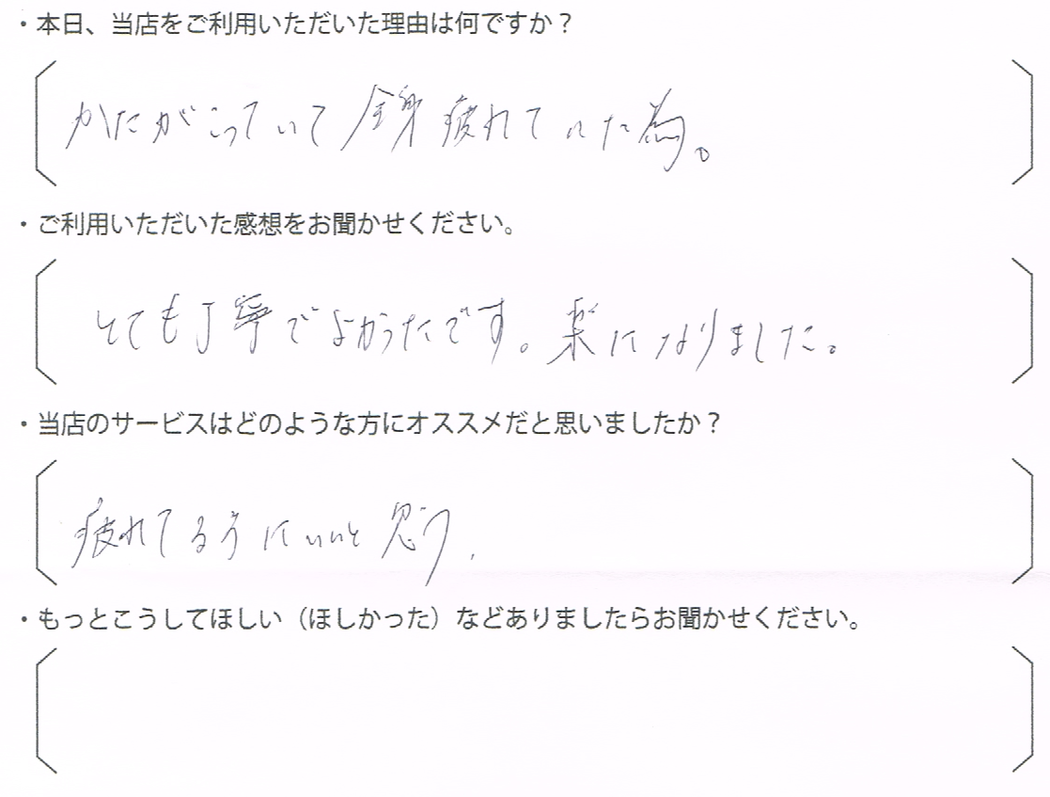 ・本日、当店をご利用いただいた理由は何ですか？
かたがこっていて全身疲れていた為。
・ご利用いただいた感想をお聞かせください。
とても丁寧でよかったです。楽になりました。
・当店のサービスはどのような方にオススメだと思いましたか？
疲れてる方にいいと思う.
・もっとこうしてほしい（ほしかった）などありましたらお聞かせください。